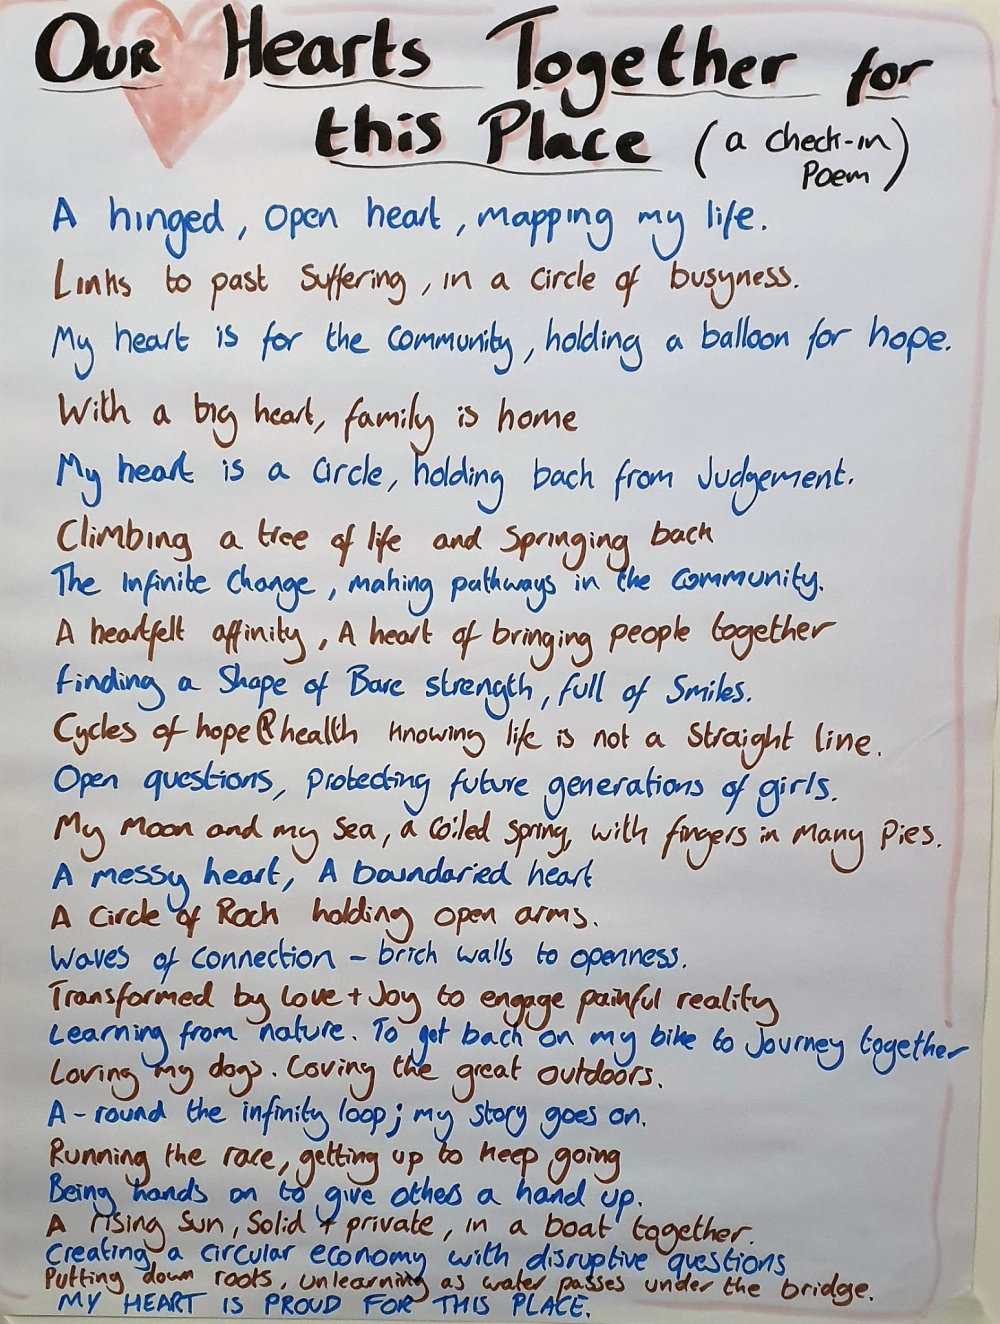 Our Hearts Together for
this Place (a check-in
Poem)
A hinged, open heart, mapping my life.
Links to past Suffering, in a circle of busyness.
My heart is for the community, holding a balloon for hope.
With a big heart, family is home
My heart is a circle, holding back from Judgement.
Climbing a tree of life and Springing back
The Infinite Change, making pathways in the community.
A heartfelt affinity, A heart of bringing people together
Finding a Shape of Bare strength, full of Smiles.
Cycles of hope & health knowing life is not a straight line.
Open questions, protecting future generations of girls.
My Moon and my Sea, a coiled spring, with fingers in Many Pies.
A messy heart, A boundaried heart
A Circle of Rock holding open arms.
Waves of connection - brick walls to openness.
Transformed by Love + Joy to engage painful reality
Learning from nature. To get back on my bike to Journey together
Loving my dogs. Loving the great outdoors.
A-round the infinity loop; my story goes on.
Running the race, getting up to keep going
Being hands on to give others a hand up.
A rising Sun, Solid + private, in a boat together.
Creating a circular economy with disruptive questions
Putting down roots, unlearning as water passes under the bridge.
MY HEART IS PROUD FOR THIS PLACE.